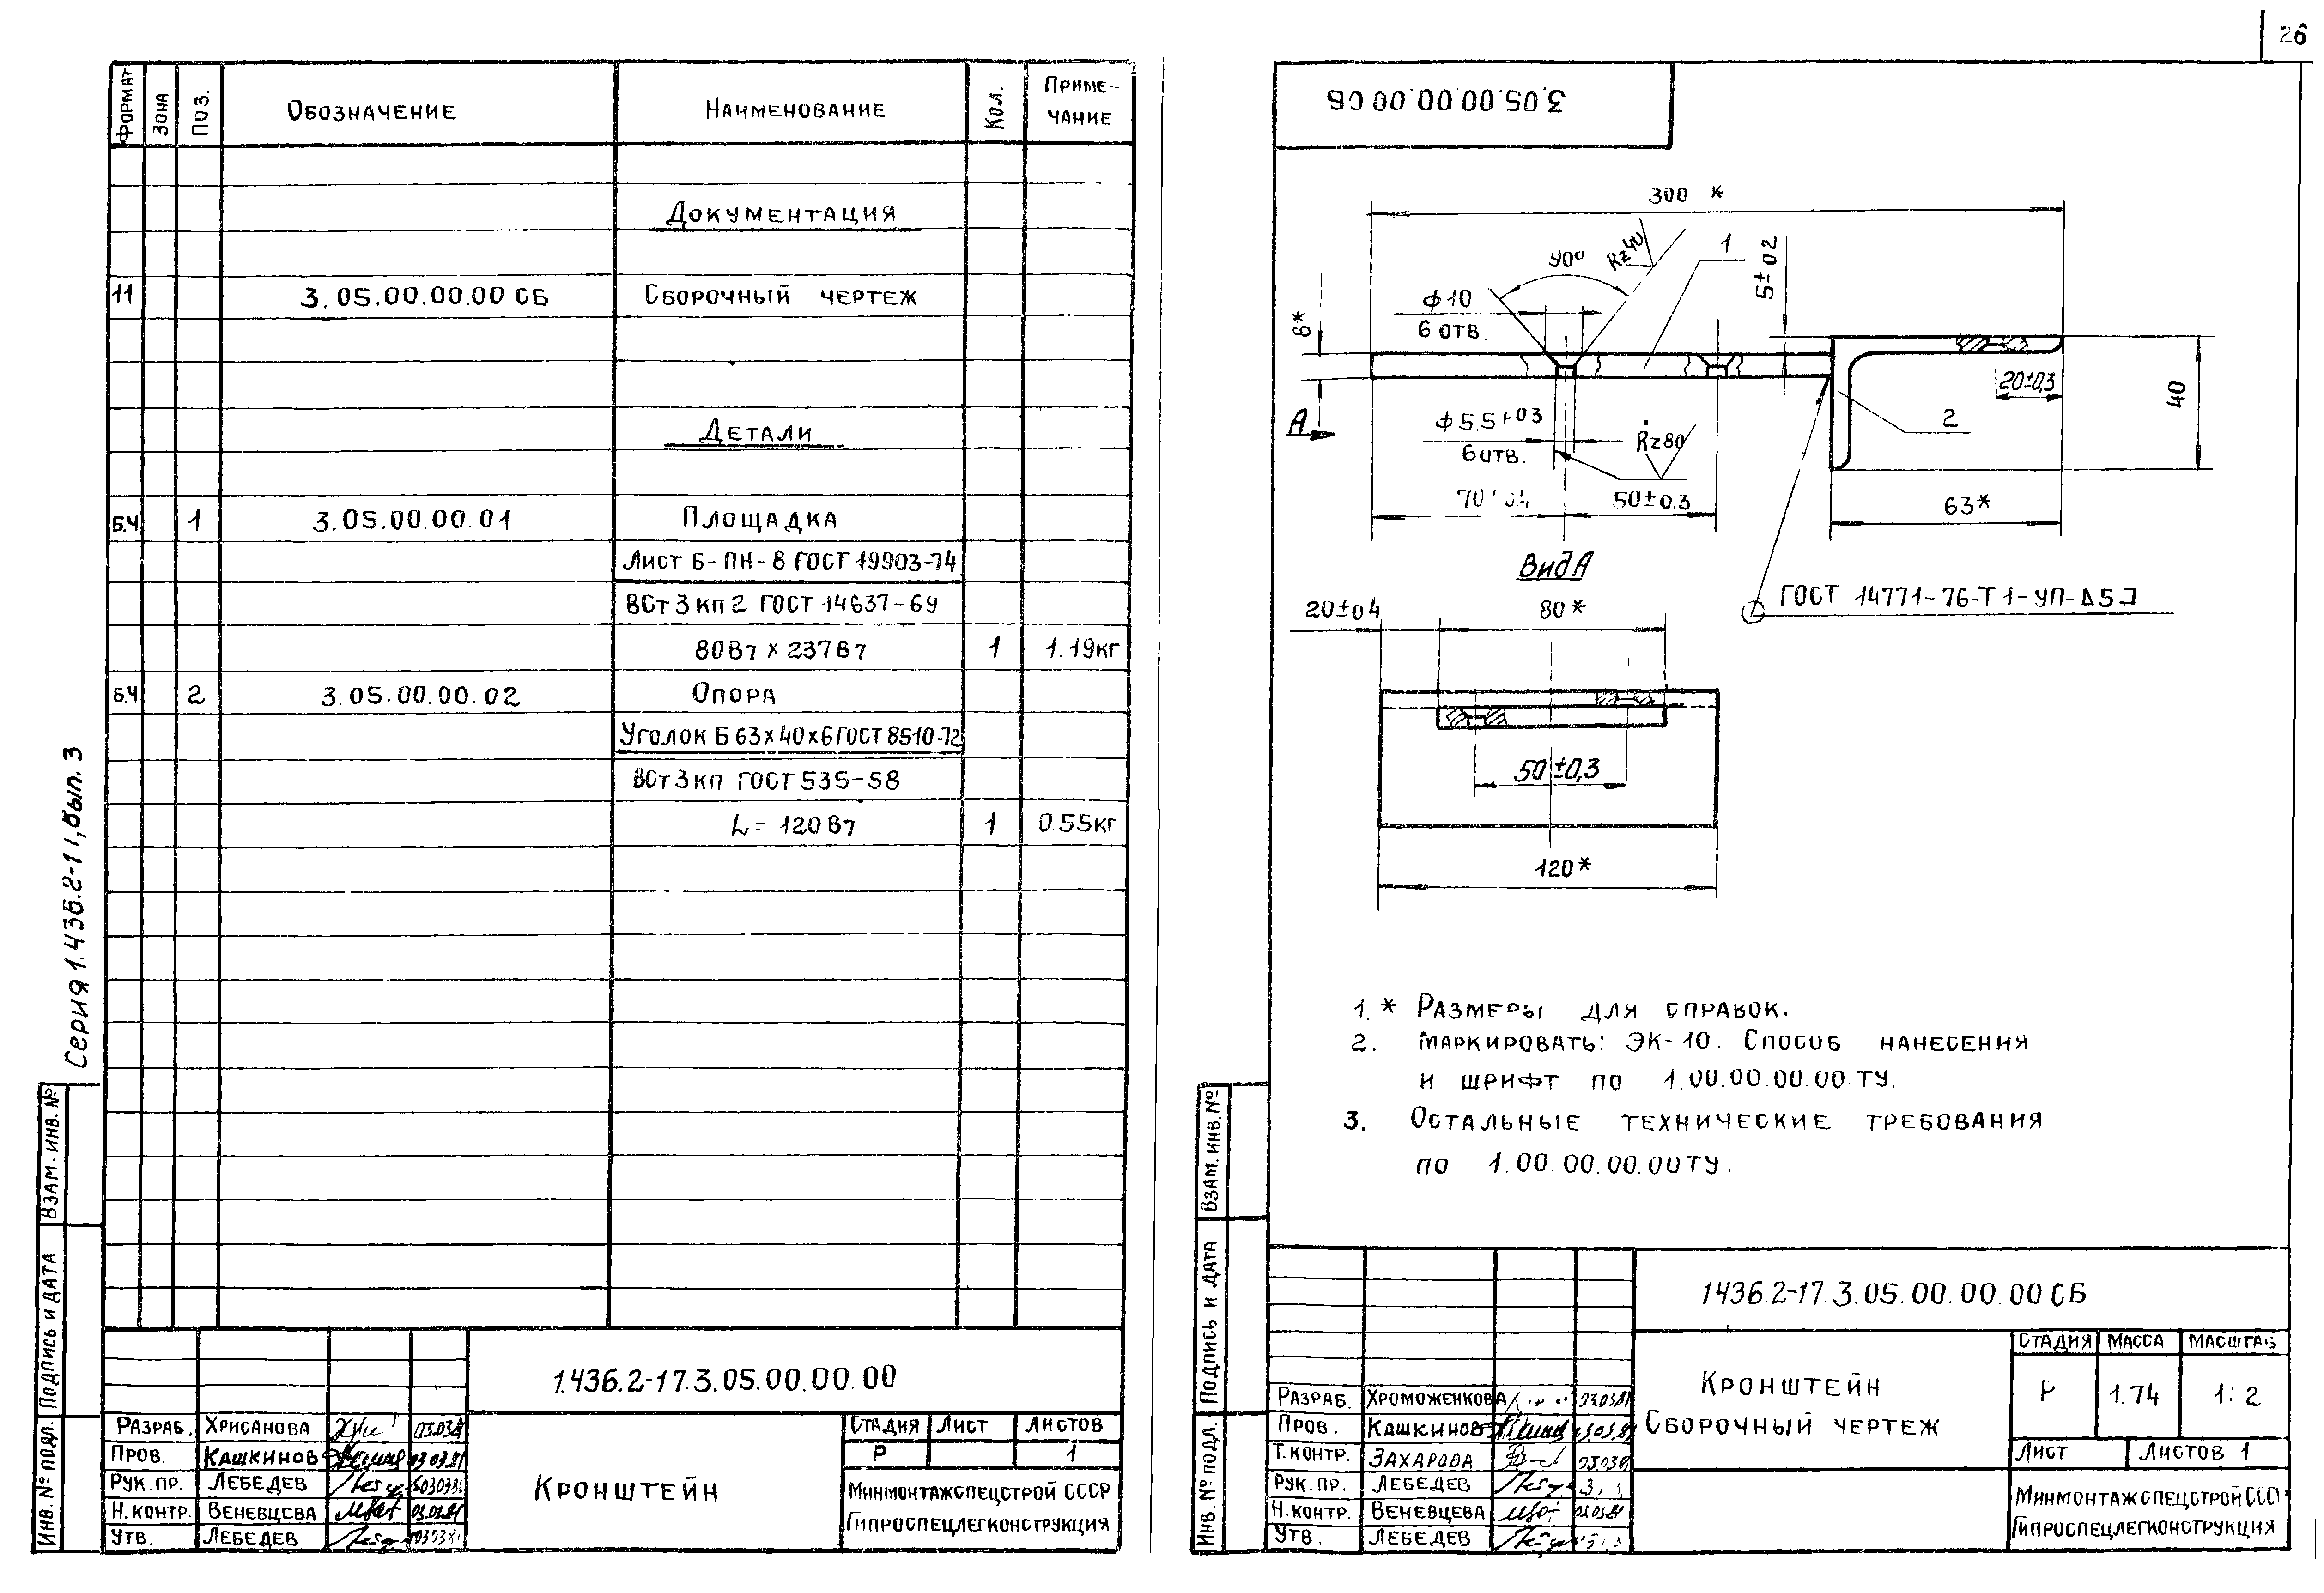 26
ФОРМАТ
ЗОНА
ПОЗ.
ОБОЗНАЧЕНИЕ
НАИМЕНОВАНИЕ
КОЛ.
ПРИМЕ-
ЧАНИЕ
ДОКУМЕНТАЦИЯ
11 3.05.00.00.00 СБ СБОРОЧНЫЙ ЧЕРТЕЖ
ДЕТАЛИ
Б.Ч 1 3.05.00.00.01 ПЛОЩАДКА
ЛИСТ Б-ПН-8 ГОСТ 19903-74
ВСт3кп2 ГОСТ 14637-69
80В7 х 237В7 1 1.19кг
Б.Ч 2 3.05.00.00.02 ОПОРА
УГОЛОК Б 63х40х6 ГОСТ 8510-72
ВСт3кп ГОСТ 535-58
L= 120В7 1 0.55кг
Серия 1.436.2-17, вып. 3
ВЗАМ. ИНВ. №
ПОДПИСЬ И ДАТА
ИНВ. № ПОДЛ.
1.436.2-17.3.05.00.00.00
РАЗРАБ. ХРИСАНОВА 03.03.81
ПРОВ. КАШКИНОВ 03.03.81
РУК. ПР. ЛЕБЕДЕВ
Н.КОНТР. ВЕНЕВЦЕВА 03.03.81
УТВ. ЛЕБЕДЕВ
КРОНШТЕЙН
СТАДИЯ ЛИСТ ЛИСТОВ
Р 1
МИНМОНТАЖСПЕЦСТРОЙ СССР
ГИПРОСПЕЦЛЕГКОНСТРУКЦИЯ
3.05.00.00.00 СБ
300 *
90°
Rz40
1
5±02
ф10
6 отв.
8*
А
ф5.5+03
6 отв.
Rz80
70 04
50±0.3
20±0,3
40
2
63*
ГОСТ 14771-76-Т1-УП-Δ5
Вид А
20±04
80*
50±0,3
120*
1. * РАЗМЕРЫ ДЛЯ СПРАВОК.
2. МАРКИРОВАТЬ: ЭК-10. СПОСОБ НАНЕСЕНИЯ
И ШРИФТ ПО 1.00.00.00.00 ТУ.
3. ОСТАЛЬНЫЕ ТЕХНИЧЕСКИЕ ТРЕБОВАНИЯ
ПО 1.00.00.00.00ТУ.
ВЗАМ. ИНВ. №
ПОДПИСЬ И ДАТА
ИНВ. № ПОДЛ.
1436.2-17.3.05.00.00.00 СБ
РАЗРАБ. ХРОМОЖЕНКОВА 03.03.81
ПРОВ. КАШКИНОВ
Т.КОНТР. ЗАХАРОВА
РУК. ПР. ЛЕБЕДЕВ
Н.КОНТР. ВЕНЕВЦЕВА 03.03.81
УТВ. ЛЕБЕДЕВ
КРОНШТЕЙН
СБОРОЧНЫЙ ЧЕРТЕЖ
СТАДИЯ МАССА МАСШТАБ
Р 1.74 1:2
ЛИСТ ЛИСТОВ 1
МИНМОНТАЖСПЕЦСТРОЙ СССР
ГИПРОСПЕЦЛЕГКОНСТРУКЦИЯ